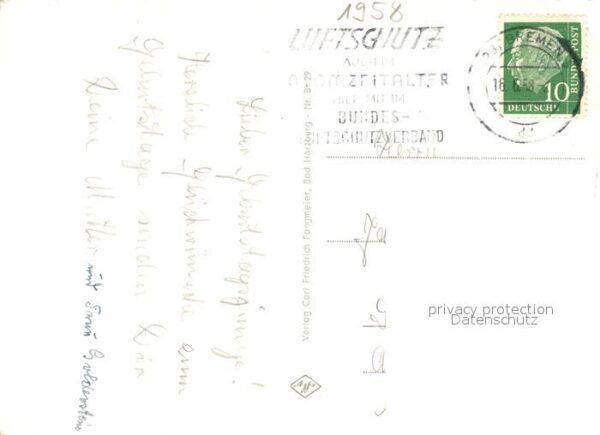 1958
LUFTSCHUTZ
AUCH IM
ATOMZEITALTER
HILF MIT IM
BUNDES-
LUFTSCHUTZVERBAND
BREMEN
16.
10
DEUTSCHE
BUNDESPOST
Herrn
Lieber Geburtstagsjunge!
Herzliche Glückwünsche zum
Geburtstage senden Dir
Deine Mutter
und
Verlag Carl Friedrich Fangmeier, Bad Harzburg - Nr. Br 29
privacy protection
Datenschutz